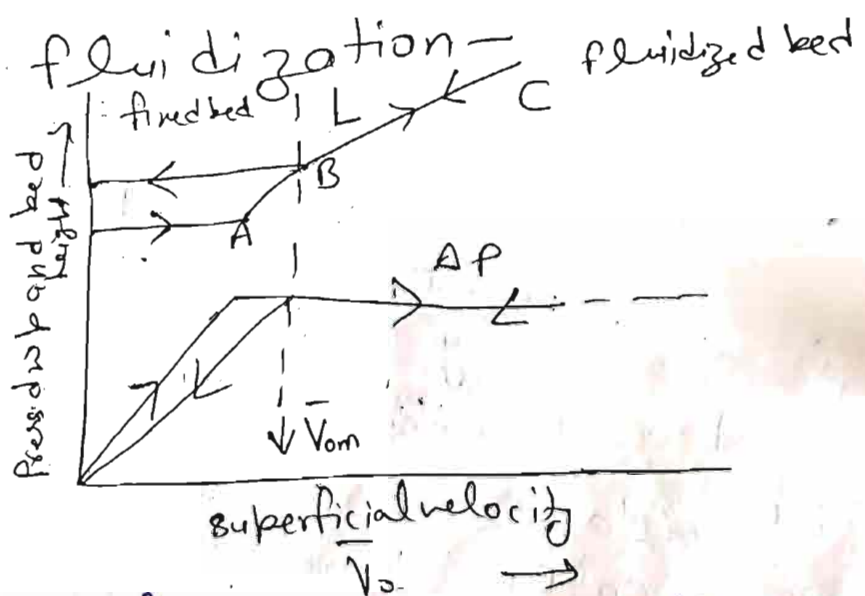 fluidization -
fluidized bed
fixed bed
L
C
B
A
Pressure drop and bed
height
ΔP
V̄om
superficial velocity
V̄o